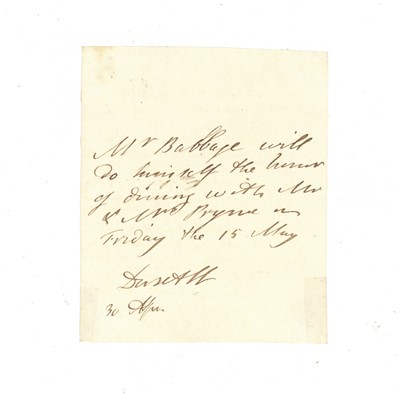 Mr Babbage will
do himself the honor
of dining with Mr
& Mrs Pryme on
Friday the 15 May
Dorset St
30 Apr.